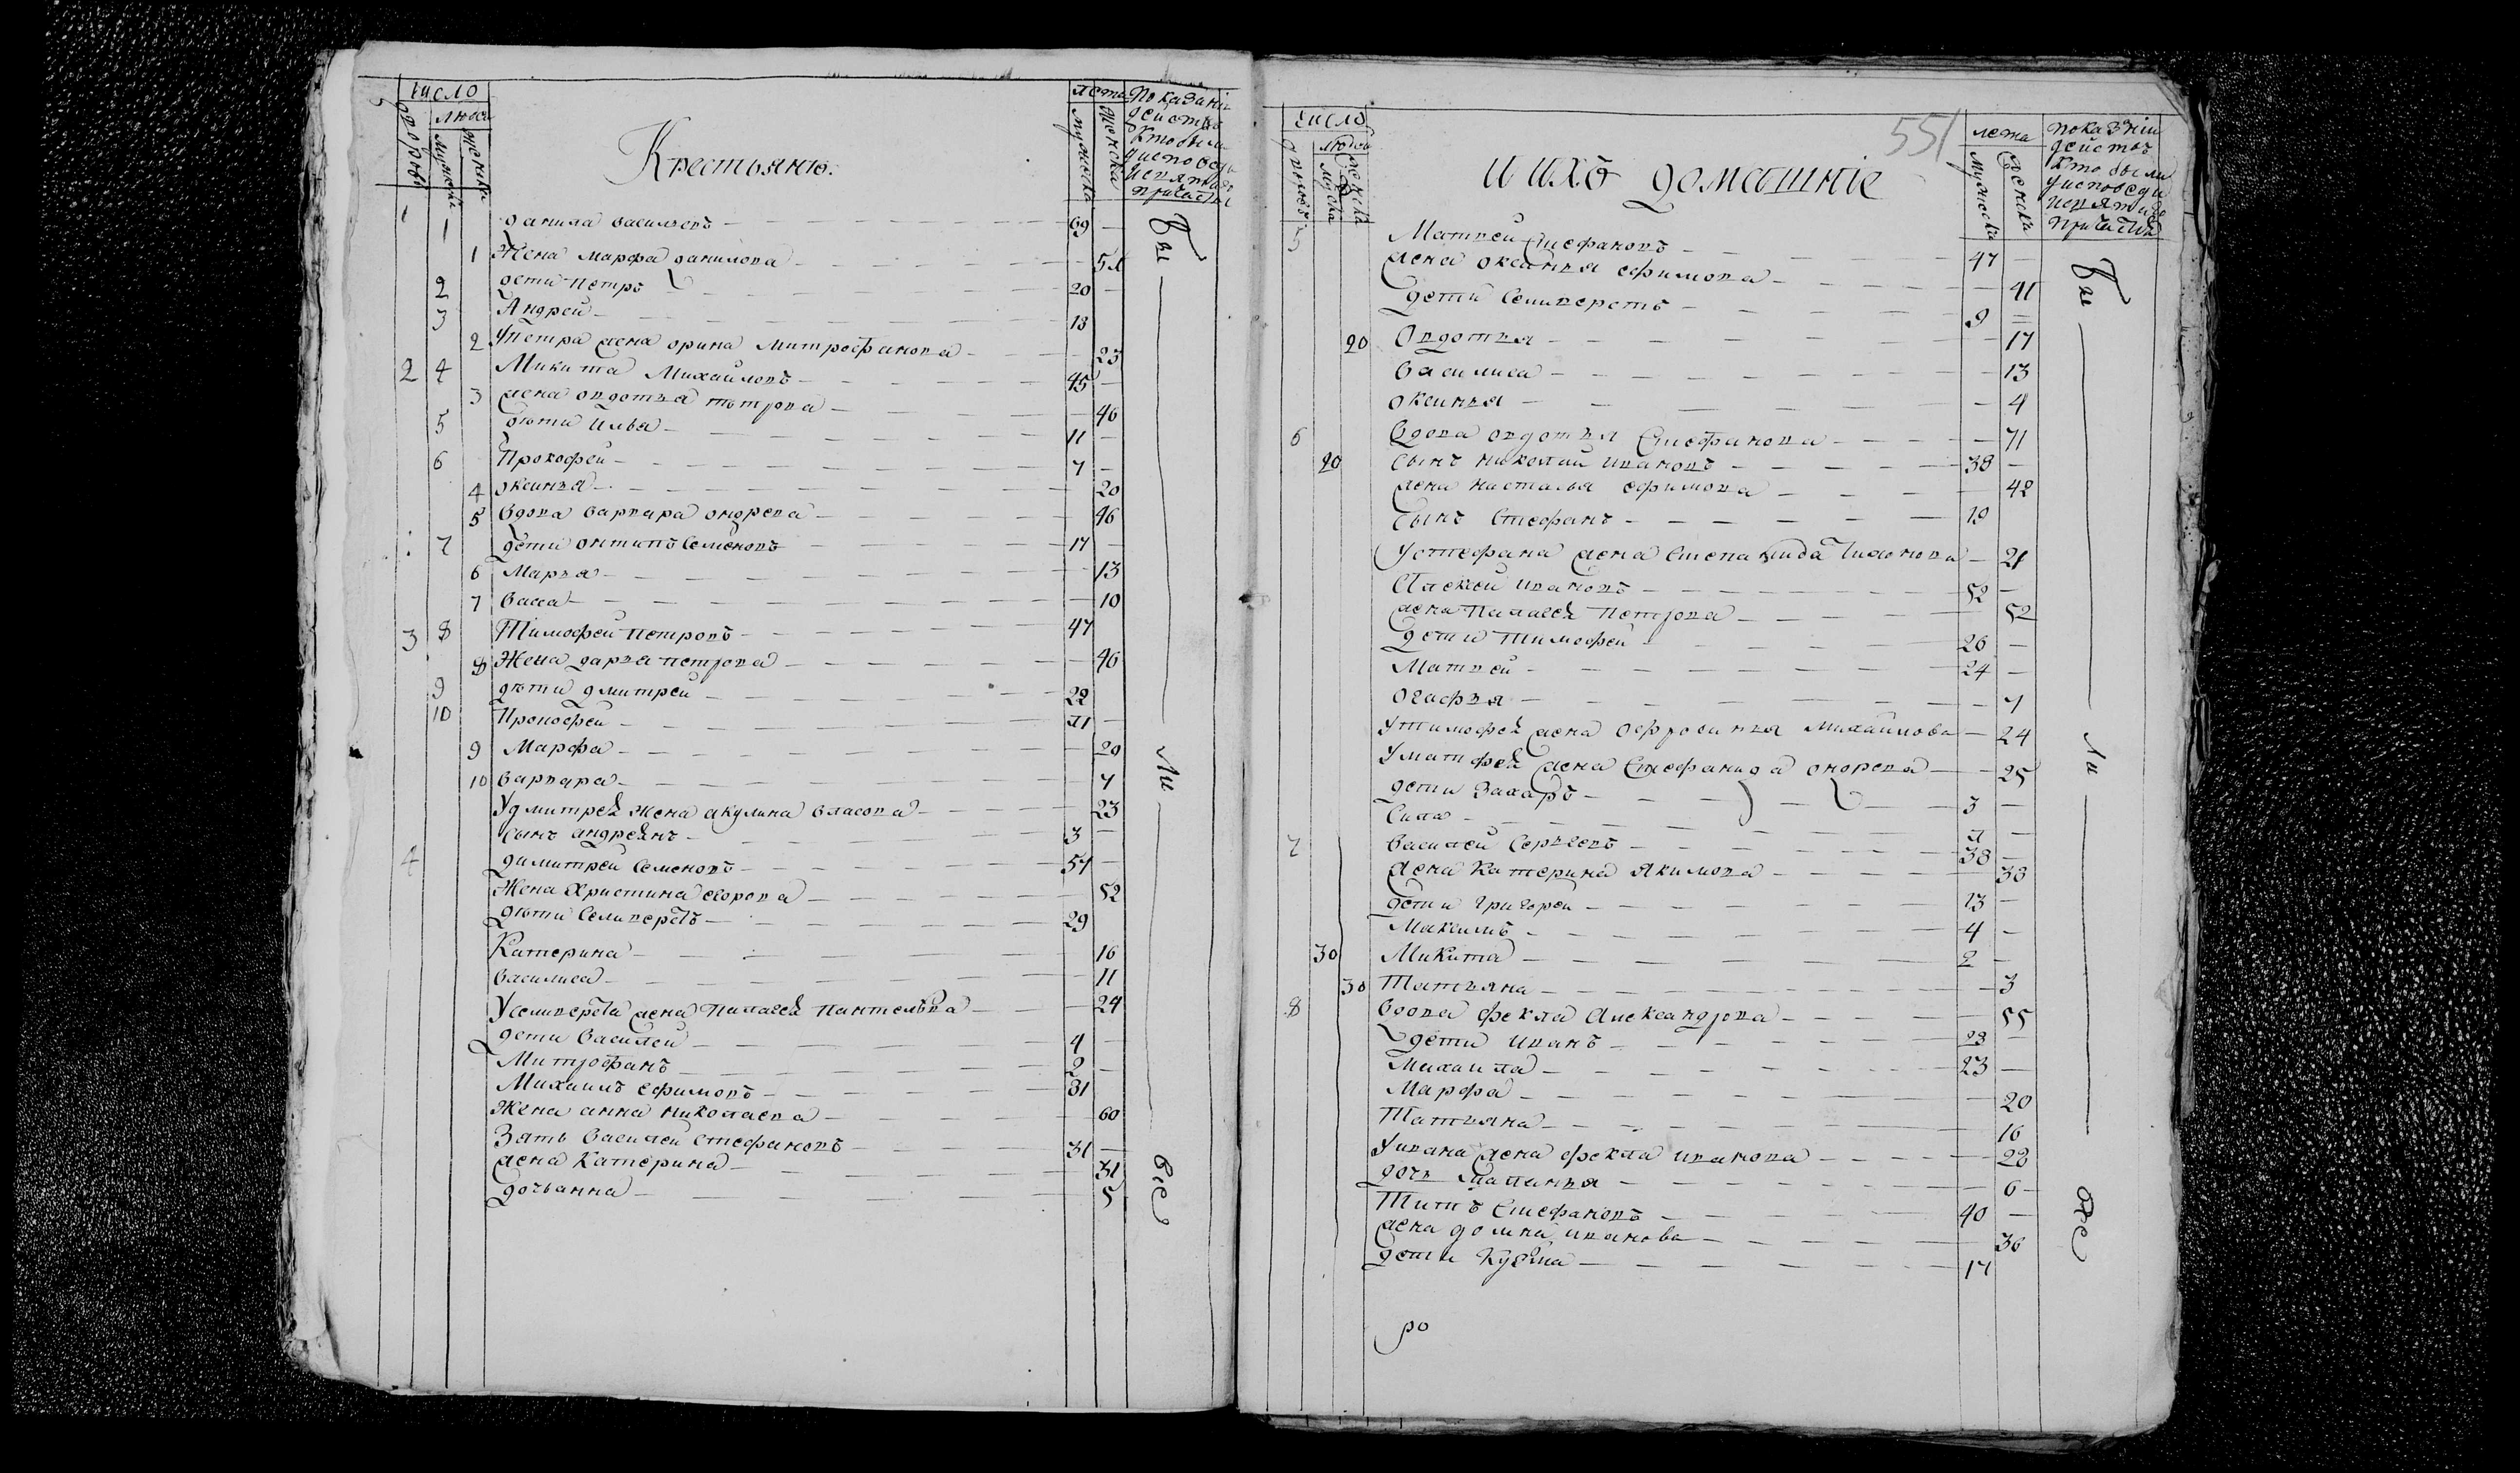 число
лета
Показанiи
дворовъ
людей
мужеска
женска
мужеска
женска
действъ
кто были
у исповеди
и святаго
причастiя
Крестьяне
1 1 данила васильевъ 69
1 Жена марфа данилова
2 дети петръ 20
3 Андрей 13
2 у петра жена орина митрофанова 23
2 4 Микита Михайловъ 45
3 жена овдотья петрова 46
5 дети илья 11
6 Прокофей 7
4 оксинья 20
5 вдова варвара ондрева 46
7 дети онтипъ Семеновъ 17
6 Марья 13
7 васса 10
3 8 Тимофей петровъ 47
8 Жена дарья петрова 46
9 дети дмитрей 22
10 Прокофей
9 Марфа 20
10 варвара 7
у дмитрея жена акулина власова 23
сынъ андреянъ 3
4 димитрей Семеновъ 57
Жена христина егорова 52
дети Селиверстъ 29
Катерина 16
василиса 11
у селиверста жена палагея пантелѣва 24
дети василей 4
Митрофанъ 2
Михаилъ ефимовъ 31
Жена анна николаева 60
Зять василей стефановъ 31
жена катерина 31
дочь анна 5
Бы
ли
все
число
551
лета
показанiи
людей
мужеска
женска
мужеска
женска
действъ
кто были
у исповеди
и святаго
причастiя
и ихъ домашнiе
Матвей Стефановъ 47
жена оксинья ефимова 41
дети Селиверстъ 9
20 Овдотья 17
василиса 13
оксинья 4
6 вдова овдотья Стефанова 71
20 сынъ николай ивановъ 38
жена насталья ефимова 42
сынъ Стефанъ 19
у стефана жена Степанида Тихонова 21
Алексей ивановъ 52
жена палагея петрова 52
дети тимофей 26
Матвей 24
огафья 7
у тимофея жена Офросинья михайлова 24
у матфея жена Стефанида ондрева 25
дети Захаръ 3
Сила
7 василей Сергеевъ 38
жена катерина якимова 38
дети григорей 13
Максимъ 4
30 Микита 2
30 Татьяна 3
8 вдова фекла Александрова 55
дети иванъ 28
михаила 23
Марфа 20
Татьяна 16
у ивана жена фекла иванова 28
дочь маланья 6
Титъ Стефановъ 40
жена домна иванова 36
дети Кузма 17
Бы
ли
все
ро